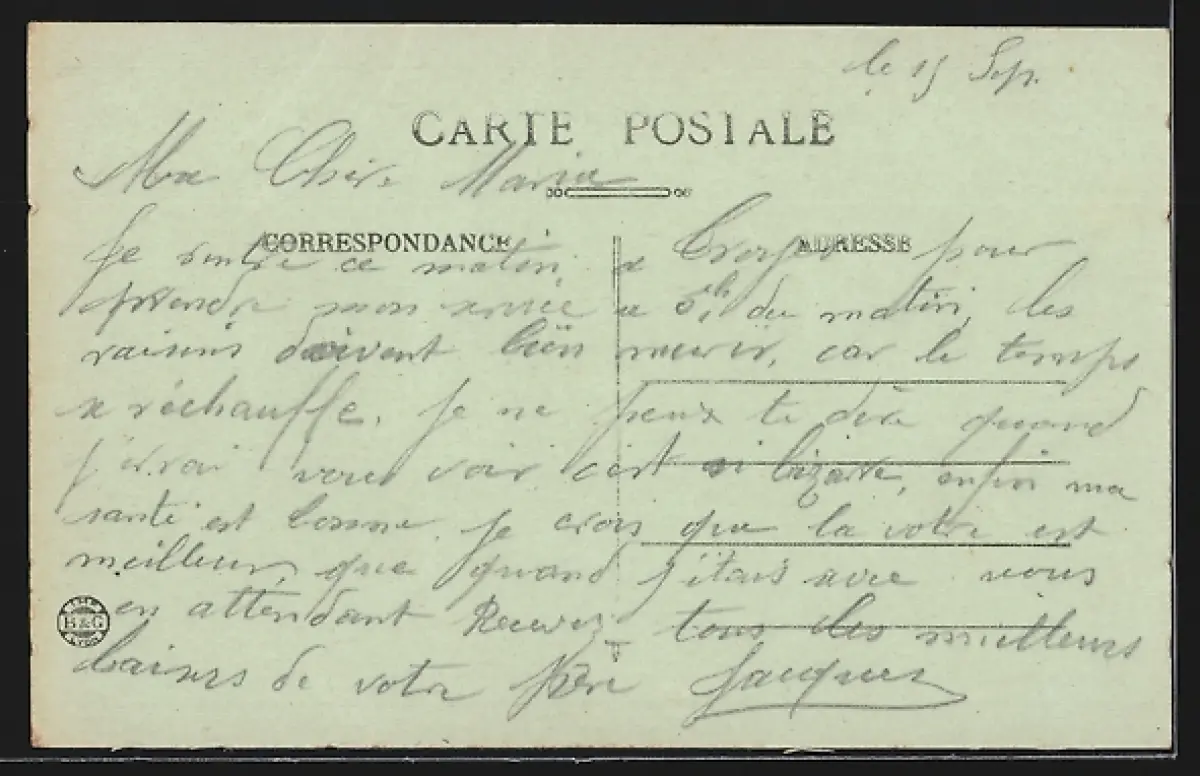 le 15 Sep.
CARTE POSTALE
Ma Chère Maria
CORRESPONDANCE
ADRESSE
Je rentre ce matin, a Troyes pour
prendre mon service a 5h du matin, les
raisins doivent bien meurir, car le temps
se réchauffe. Je ne peux te dire quand
j'irai vous voir c'est si bizarre, enfin ma
santé est bonne. Je crois que la votre est
meilleur, que quand j'étais avec vous
en attendant Recevez tous les meilleurs
baisers de votre frère Jacques
IMP
B & G
LYON